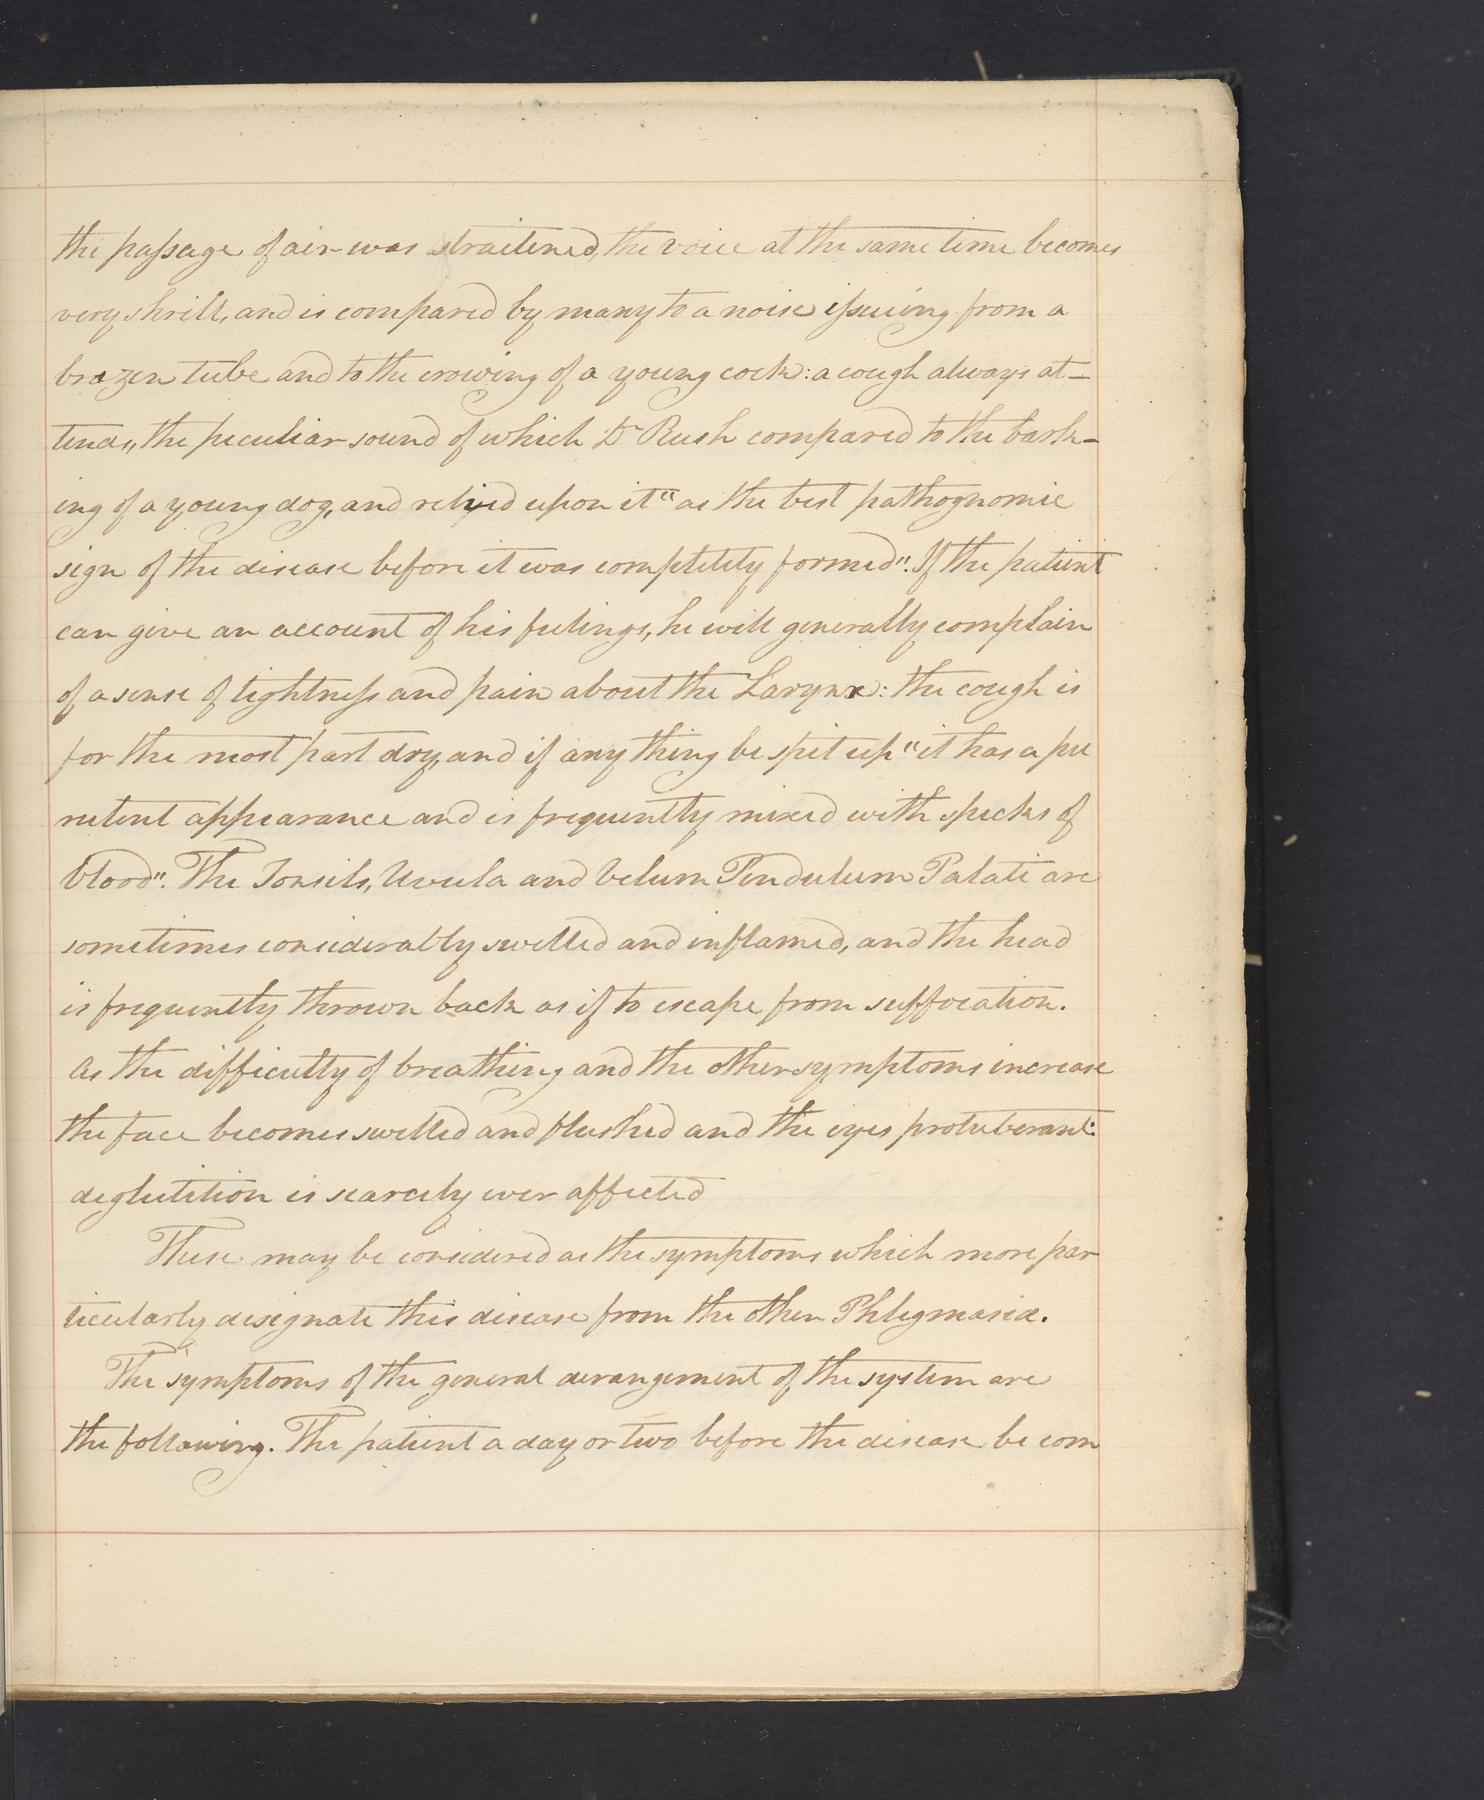 the passage of air was straitened, the voice at the same time becomes
very shrill, and is compared by many to a noise issuing from a
brazen tube and to the crowing of a young cock: a cough always at-
tends, the peculiar sound of which Dr Rush compared to the bark-
ing of a young dog, and relyed upon it "as the best pathognomic
sign of the disease before it was completely formed". If the patient
can give an account of his feelings, he will generally complain
of a sense of tightness and pain about the Larynx: the cough is
for the most part dry, and if any thing be spit up "it has a pu
rulent appearance and is frequently mixed with specks of
blood". The Tonsils, Uvula and Velum Pendulum Palati are
sometimes considerably swelled and inflamed, and the head
is frequently thrown back as if to escape from suffocation.
As the difficulty of breathing and the other symptoms increase
the face becomes swelled and flushed and the eyes protuberant:
deglutition is scarcely ever affected
These may be considered as the symptoms which more par
ticularly designate this disease from the other Phlegmasiæ.
The symptoms of the general derangement of the system are
the following. The patient a day or two before the disease be com